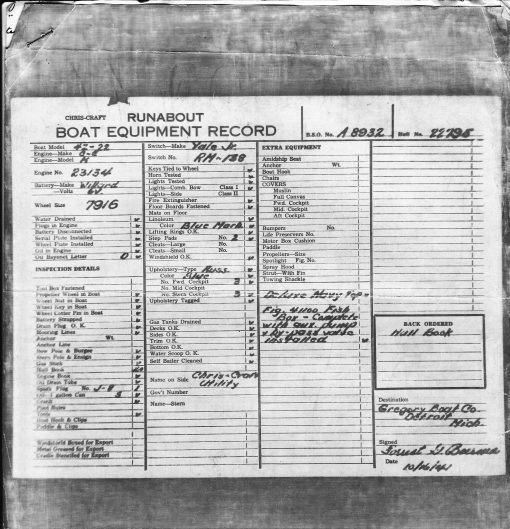 CHRIS-CRAFT RUNABOUT
BOAT EQUIPMENT RECORD
B.S.O. No. A 8932 Hull No. 22795
Boat Model 42-22
Engine—Make
Engine—Model
Engine No. 23134
Battery—Make Willard
—Volts 6V
Wheel Size 7916
Water Drained
Plugs in Engine
Battery Disconnected
Serial Plate Installed
Wheel Plate Installed
Oil in Engine
Oil Bayonet Letter O
INSPECTION DETAILS
Tool Box Fastened
Propeller Wheel in Boat
Wheel Nut in Boat
Wheel Key in Boat
Wheel Cotter Pin in Boat
Battery Strapped
Drum Plug O.K.
Mooring Lines
Anchor Wt.
Anchor Line
Bow Pole & Burgee
Stern Pole & Ensign
Gas Stick
Hull Book
Engine Book
Oil Drain Tube
Spark Plug No. J-8
Oil—1 gallon Can 3
Tools
Boat Hook & Clips
Paddle & Clips
Windshield Boxed for Export
Metal Greased for Export
Cradle Stenciled for Export
Switch—Make Yale Jr.
Switch No. RM-138
Keys Tied to Wheel
Horn Tested
Lights Tested
Lights—Comb. Bow Class I
Lights—Side Class II
Fire Extinguisher
Floor Boards Fastened
Mats on Floor
Linoleum
Color Blue Marb.
Lifting Rings O.K.
Step Pads No. 2
Cleats—Large No.
Cleats—Small No.
Windshield O.K.
Upholstery—Type Russ.
Color Blue
No. Fwd. Cockpit 3
No. Mid Cockpit
No. Stern Cockpit 3
Upholstery Tagged
Gas Tanks Drained
Decks O.K.
Sides O.K.
Trim O.K.
Bottom O.K.
Water Scoop O.K.
Self Bailer Cleaned
Name on Side Chris-Craft
Utility
Gov't Number
Name—Stern
EXTRA EQUIPMENT
Amidship Seat
Anchor Wt.
Boat Hook
Chairs
COVERS
Muslin
Full Canvas
Fwd. Cockpit
Mid. Cockpit
Aft Cockpit
Bumpers No.
Life Preservers No.
Motor Box Cushion
Paddle
Propellers—Size
Spotlight Fig. No.
Spray Hood
Strut—With Fin
Towing Shackle
Deluxe Navy Top
Fig. 4100 Fish
Box - Complete
with aux. pump
& by-pass valve
installed
BACK ORDERED
Hull Book
Destination
Gregory Boat Co.
Detroit
Mich.
Signed
Date 10/16/41